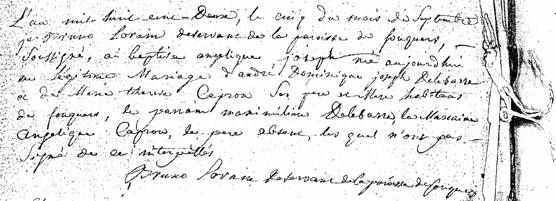 L'an mil huit cent Deux, le cinq du mois de Septembre
je Bruno Loram deservant de la paroisse de fouquers,
Soussigné, ai baptisé angelique, joseph née aujourdhui
au legitime Mariage d'andré Dominique joseph Delebarre
et de Marie therese Capron Ses pere et Mere habitans
de fouquers, le parrain maximilien Delebarre, la Marraine
angelique Capron, le pere absent, les quel n'ont pas
signé de ce interpellés
Bruno Loram deservant de la paroisse de fouquers